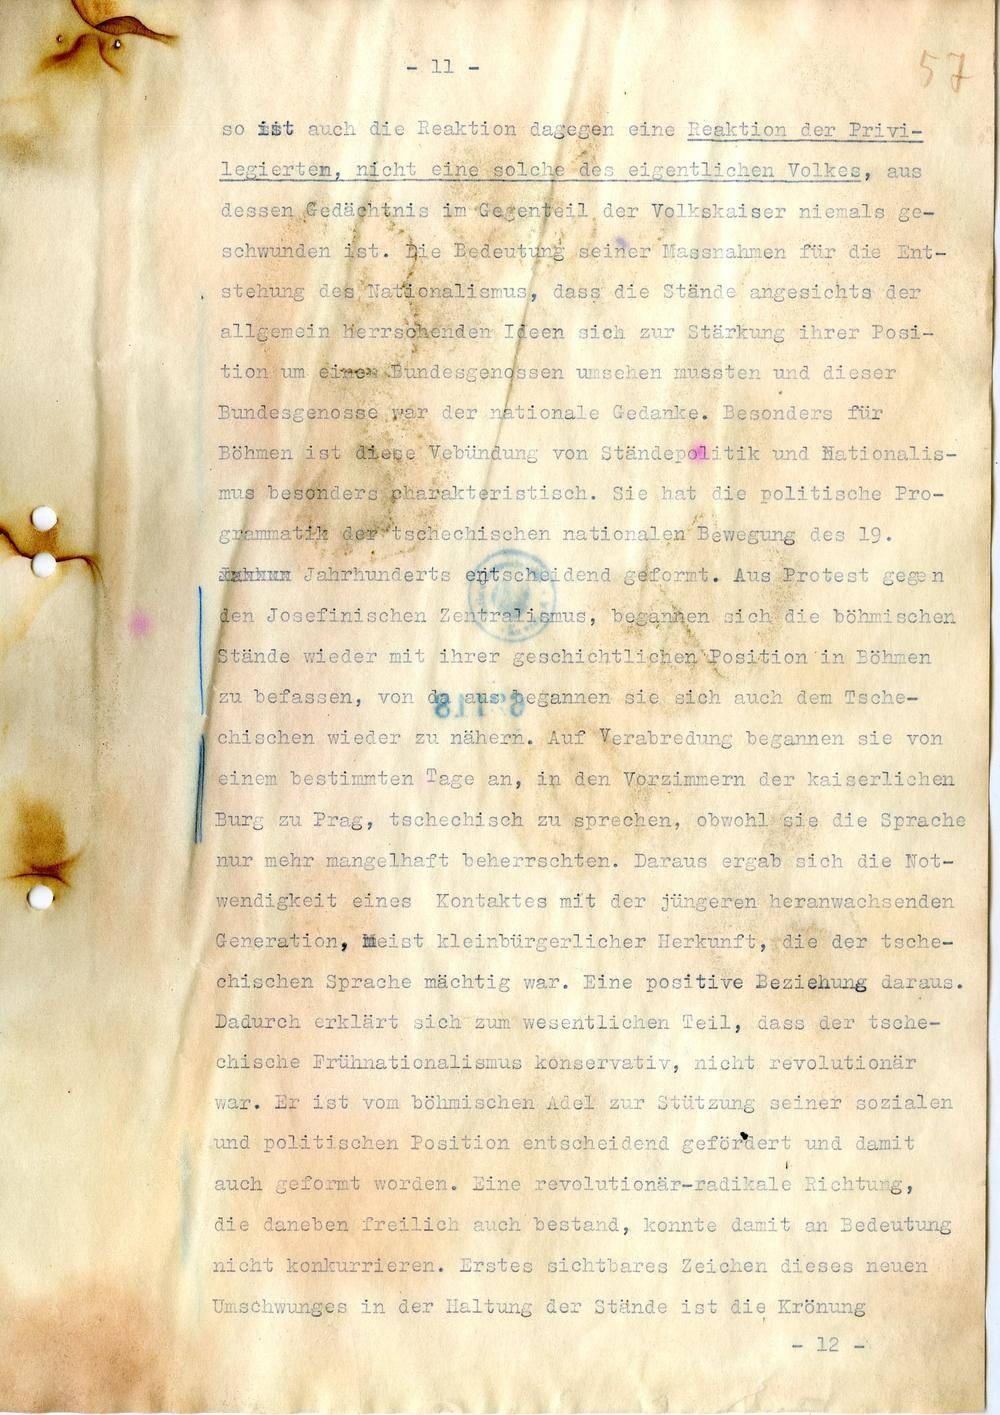 - 11 -
57
so ist auch die Reaktion dagegen eine Reaktion der Privi-
legierten, nicht eine solche des eigentlichen Volkes, aus
dessen Gedächtnis im Gegenteil der Volkskaiser niemals ge-
schwunden ist. Die Bedeutung seiner Massnahmen für die Ent-
stehung des Nationalismus, dass die Stände angesichts der
allgemein herrschenden Ideen sich zur Stärkung ihrer Posi-
tion um einen Bundesgenossen umsehen mussten und dieser
Bundesgenosse war der nationale Gedanke. Besonders für
Böhmen ist diese Vebündung von Ständepolitik und Nationalis-
mus besonders charakteristisch. Sie hat die politische Pro-
grammatik der tschechischen nationalen Bewegung des 19.
Jahrhunderts entscheidend geformt. Aus Protest gegen
den Josefinischen Zentralismus, begannen sich die böhmischen
Stände wieder mit ihrer geschichtlichen Position in Böhmen
zu befassen, von da aus begannen sie sich auch dem Tsche-
chischen wieder zu nähern. Auf Verabredung begannen sie von
einem bestimmten Tage an, in den Vorzimmern der kaiserlichen
Burg zu Prag, tschechisch zu sprechen, obwohl sie die Sprache
nur mehr mangelhaft beherrschten. Daraus ergab sich die Not-
wendigkeit eines Kontaktes mit der jüngeren heranwachsenden
Generation, meist kleinbürgerlicher Herkunft, die der tsche-
chischen Sprache mächtig war. Eine positive Beziehung daraus.
Dadurch erklärt sich zum wesentlichen Teil, dass der tsche-
chische Frühnationalismus konservativ, nicht revolutionär
war. Er ist vom böhmischen Adel zur Stützung seiner sozialen
und politischen Position entscheidend gefördert und damit
auch geformt worden. Eine revolutionär-radikale Richtung,
die daneben freilich auch bestand, konnte damit an Bedeutung
nicht konkurrieren. Erstes sichtbares Zeichen dieses neuen
Umschwunges in der Haltung der Stände ist die Krönung
- 12 -